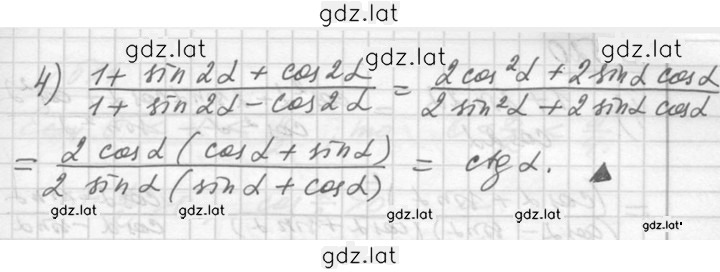 gdz.lat
gdz.lat gdz.lat
4) (1 + sin 2α + cos 2α) / (1 + sin 2α - cos 2α) = (2 cos²α + 2 sin α cos α) / (2 sin²α + 2 sin α cos α)
= (2 cos α (cos α + sin α)) / (2 sin α (sin α + cos α)) = ctg α. ▲
gdz.lat gdz.lat gdz.lat gdz.lat gdz.lat
gdz.lat